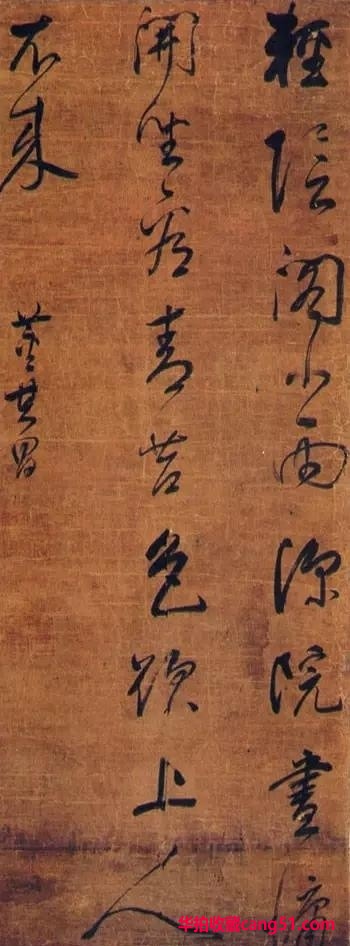 輕陰閣小雨深院晝慵
開坐看青苔色欲上人
衣來
董其昌
华拍收藏cang51.com